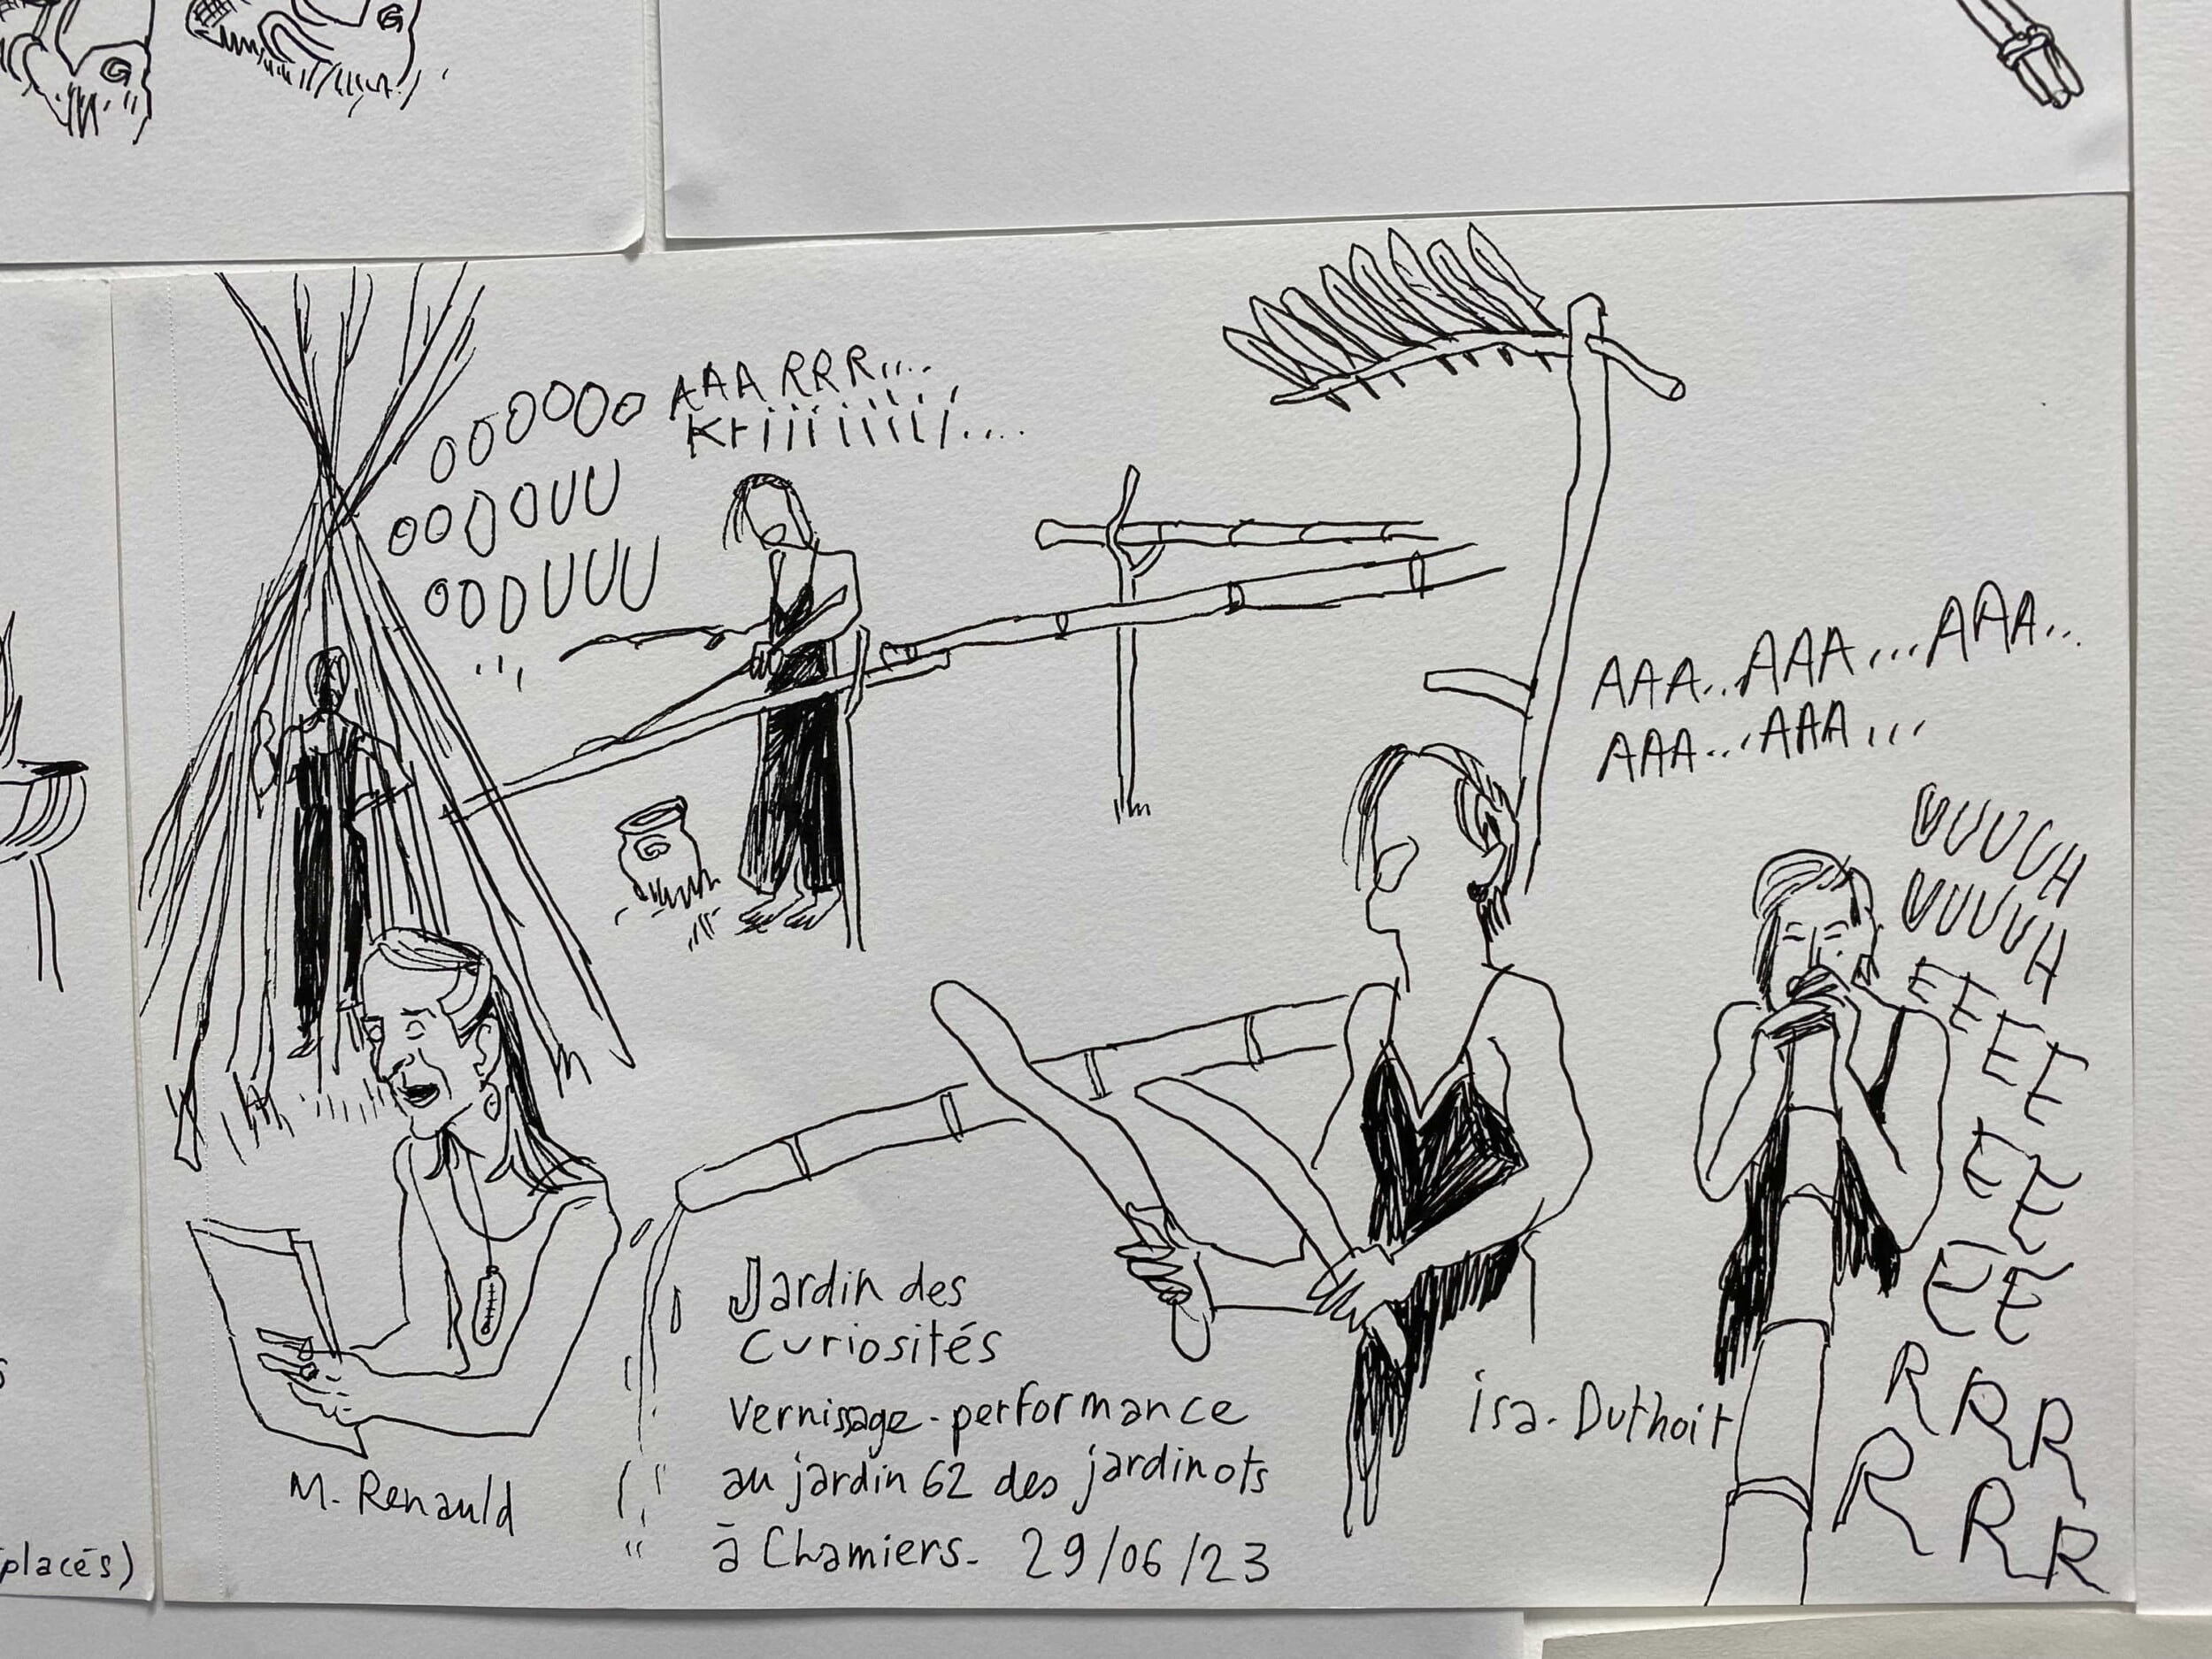 OOOOOOO AAA RRR....
Kriiiiiiii....
OOOOUU
OOOUUU
AAA...AAA...AAA...
AAA...AAA...
UUUUH
UUUUH
EEEEE
EEE
EE
RRR
RRR
Jardin des
curiosités
vernissage-performance
au jardin 62 des jardinots
à Chamiers- 29/06/23
isa-Duthoit
M-Renauld
placés)
G
G
G